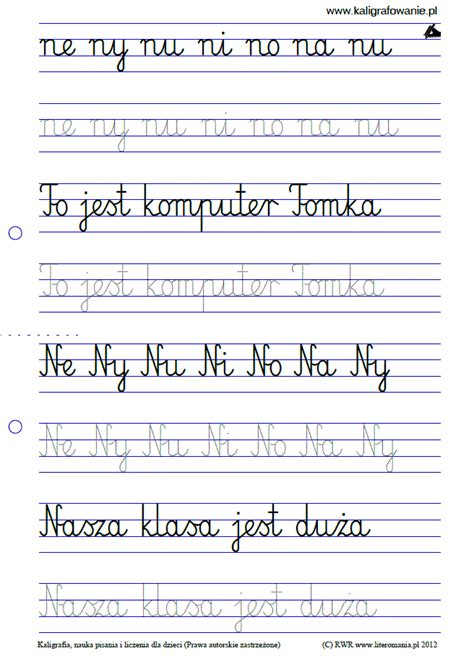 www.kaligrafowanie.pl
ne ny nu ni no na nu
ne ny nu ni no na nu
To jest komputer Tomka
To jest komputer Tomka
Ne Ny Nu Ni No Na Ny
Ne Ny Nu Ni No Na Ny
Nasza klasa jest duża
Nasza klasa jest duża
Kaligrafia, nauka pisania i liczenia dla dzieci (Prawa autorskie zastrzeżone) (C) RWR www.literomania.pl 2012